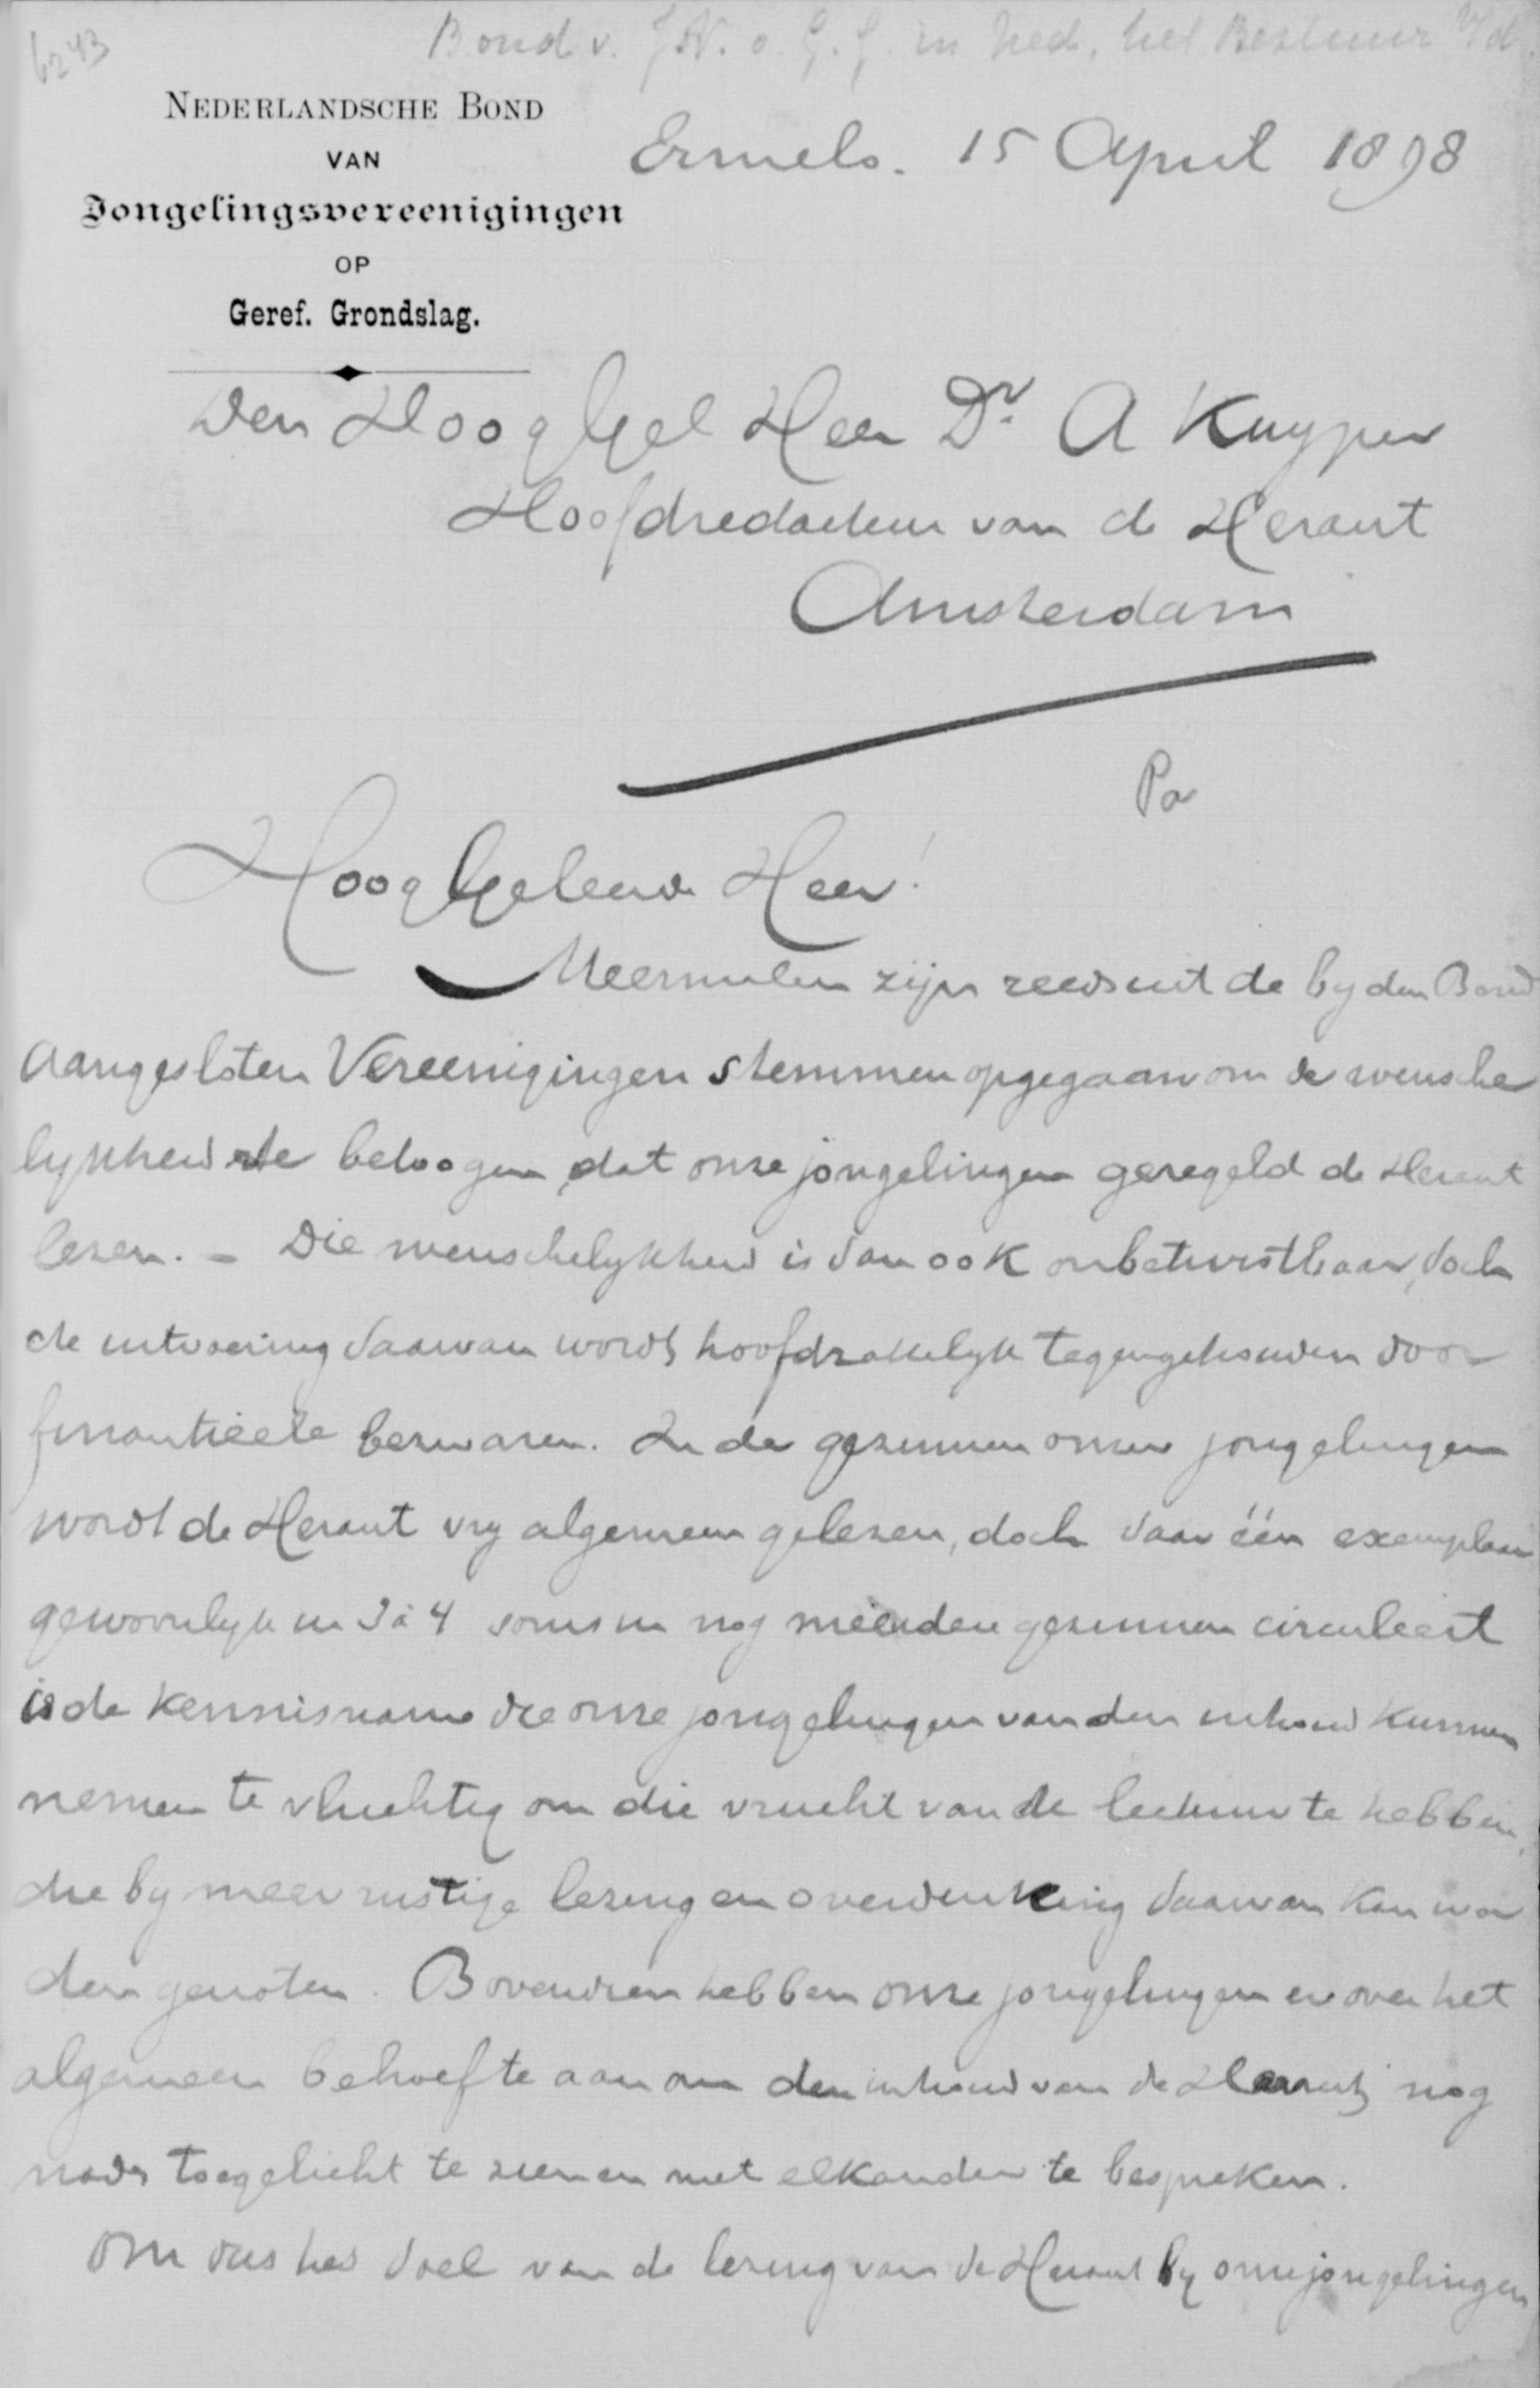 6243
Bond v. J.V. o G.G. in Ned. het Bestuur v/d
NEDERLANDSCHE BOND
VAN
Jongelingsvereenigingen
OP
Geref. Grondslag.
Ermelo. 15 April 1898
Den HoogGel Heer Dr. A Kuyper
Hoofdredacteur van de Heraut
Amsterdam
HoogGeleerde Heer!
Meermalen zijn reeds uit de by den Bond
aangesloten Vereenigingen stemmen opgegaan om de wensche
lykheid te betoogen, dat onze jongelingen geregeld de Heraut
lezen. – Die wenschelykheid is dan ook onbetwistbaar, doch
de uitvoering daarvan wordt hoofdzakelyk tegengehouden door
finantieële bezwaren. In de gezinnen onzer jongelingen
wordt de Heraut vry algemeen gelezen, doch daar één exemplaar
gewoonlyk in 3 à 4 soms in nog meerdere gezinnen circuleert
is de kennisname die onze jongelingen van den inhoud kunnen
nemen te vluchtig om die vrucht van de lectuur te hebben,
die by meer rustige lezing en overdenking daarvan kan wor
den genoten. Bovendien hebben onze jongelingen er over het
algemeen behoefte aan om den inhoud van de Heraut nog
nader toegelicht te zien en met elkander te bespreken.
Om dus het doel van de lezing van de Heraut by onze jongelingen